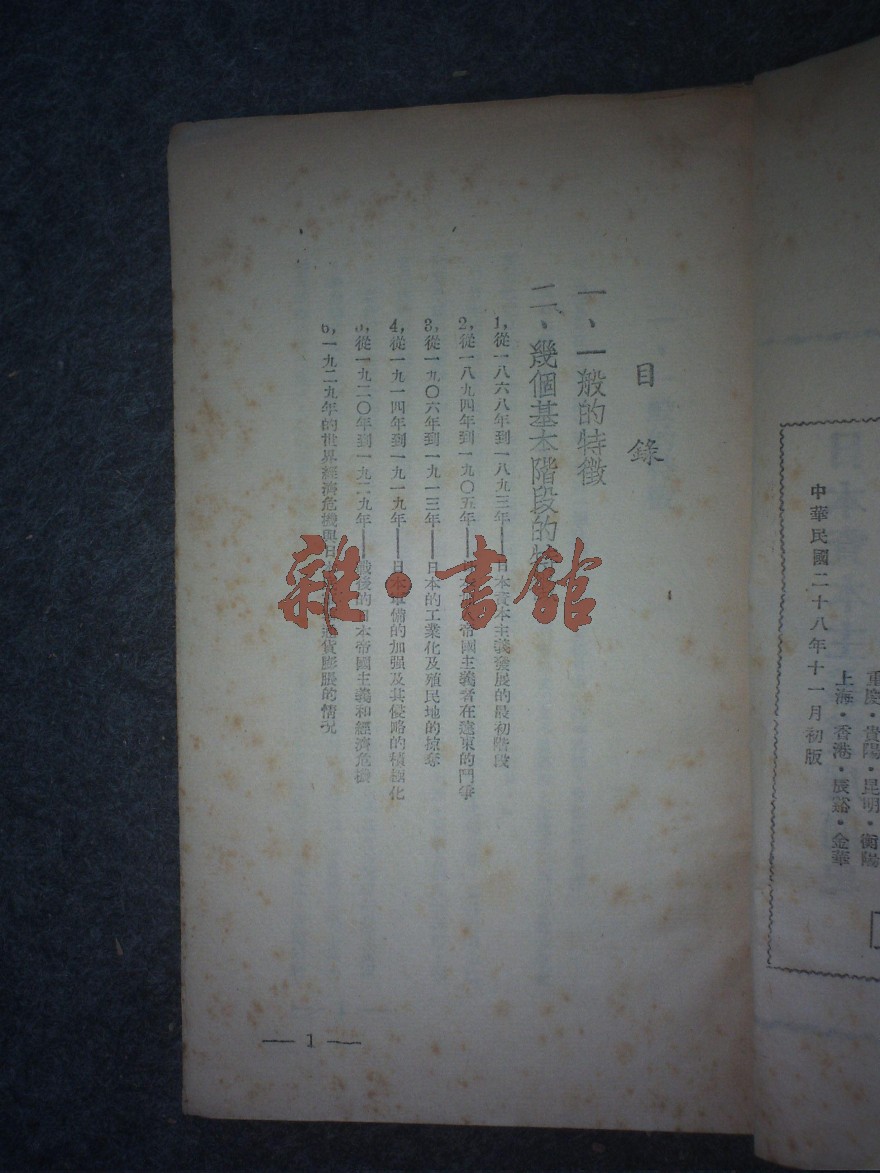 中華民國二十八年十一月初版
重慶·貴陽·昆明·衡陽
上海·香港·辰谿·金華
目錄
一、一般的特徵
二、幾個基本階段的特
1，從一八六八年到一八九三年——日本資本主義發展的最初階段
2，從一八九四年到一九〇五年——帝國主義者在遠東的鬥爭
3，從一九〇六年到一九一三年——日本的工業化及殖民地的掠奪
4，從一九一四年到一九一九年——日本軍備的加强及其侵略的積極化
5，從一九二〇年到一九二九年——戰後的日本帝國主義和經濟危機
6，一九二九年的世界經濟危機與日貨膨脹的情況
— 1 —
雜·書館